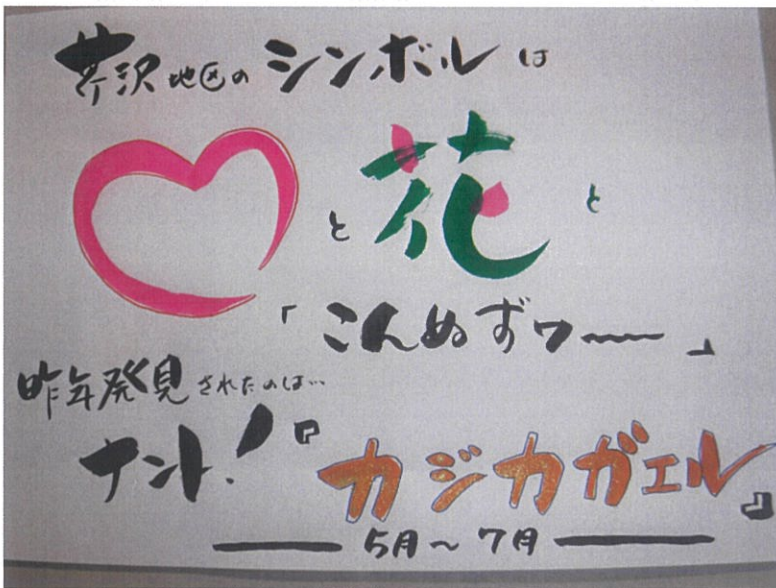 芹沢地区のシンボルは
と花と
「こんぬずワ〜〜」
昨年発見されたのは…
ナント!『カジカガエル』
5月〜7月